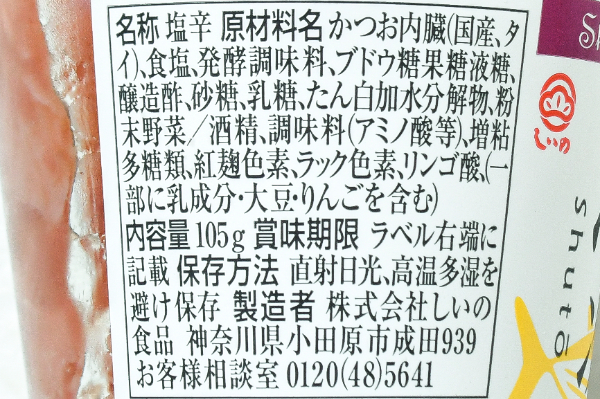 名称 塩辛 原材料名 かつお内臓(国産、タ
イ)、食塩、発酵調味料、ブドウ糖果糖液糖、
醸造酢、砂糖、乳糖、たん白加水分解物、粉
末野菜/酒精、調味料(アミノ酸等)、増粘
多糖類、紅麹色素、ラック色素、リンゴ酸、(一
部に乳成分・大豆・りんごを含む)
内容量 105g 賞味期限 ラベル右端に
記載 保存方法 直射日光、高温多湿を
避け保存 製造者 株式会社しいの
食品 神奈川県小田原市成田939
お客様相談室 0120(48)5641
しいの
shutō